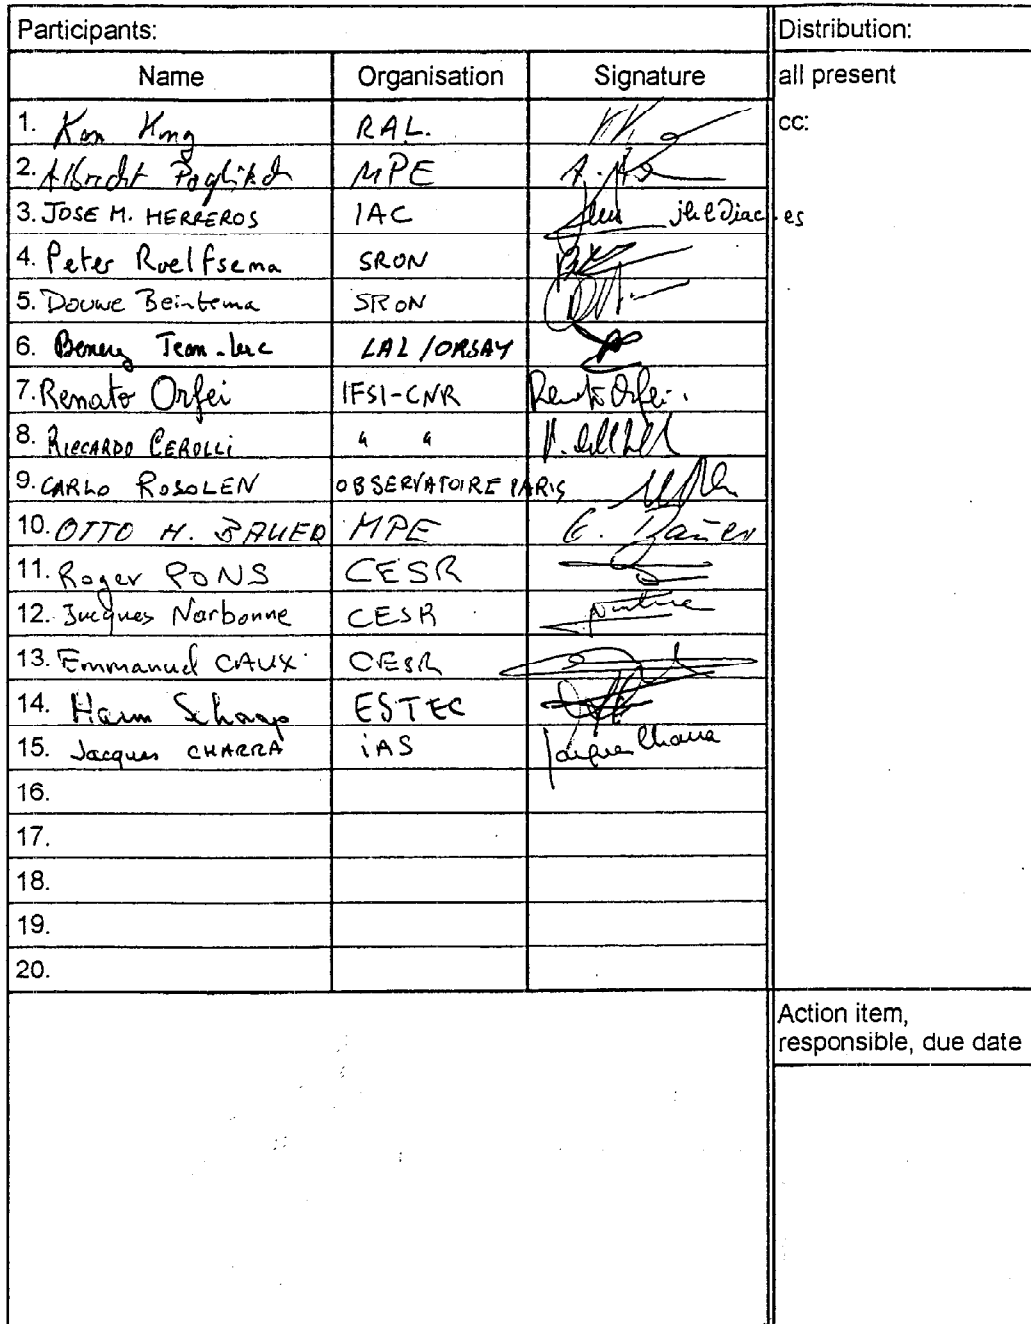 Participants:
Distribution:
Name Organisation Signature
all present
1. Ken King RAL.
cc:
2. Albrecht Poglitsch MPE
3. JOSE M. HERREROS IAC
4. Peter Roelfsema SRON
5. Douwe Beintema SRON
6. Jean-luc LAL/ORSAY
7. Renato Orfei IFSI-CNR Renato Orfei.
8. RICCARDO CEROLLI " "
9. CARLO ROSOLEN OBSERVATOIRE PARIS
10. OTTO H. BAUER MPE
11. Roger PONS CESR
12. Jacques Narbonne CESR
13. Emmanuel CAUX CESR
14. Harm Schaap ESTEC
15. Jacques CHARRA iAS Jacques Charra
16.
17.
18.
19.
20.
Action item,
responsible, due date